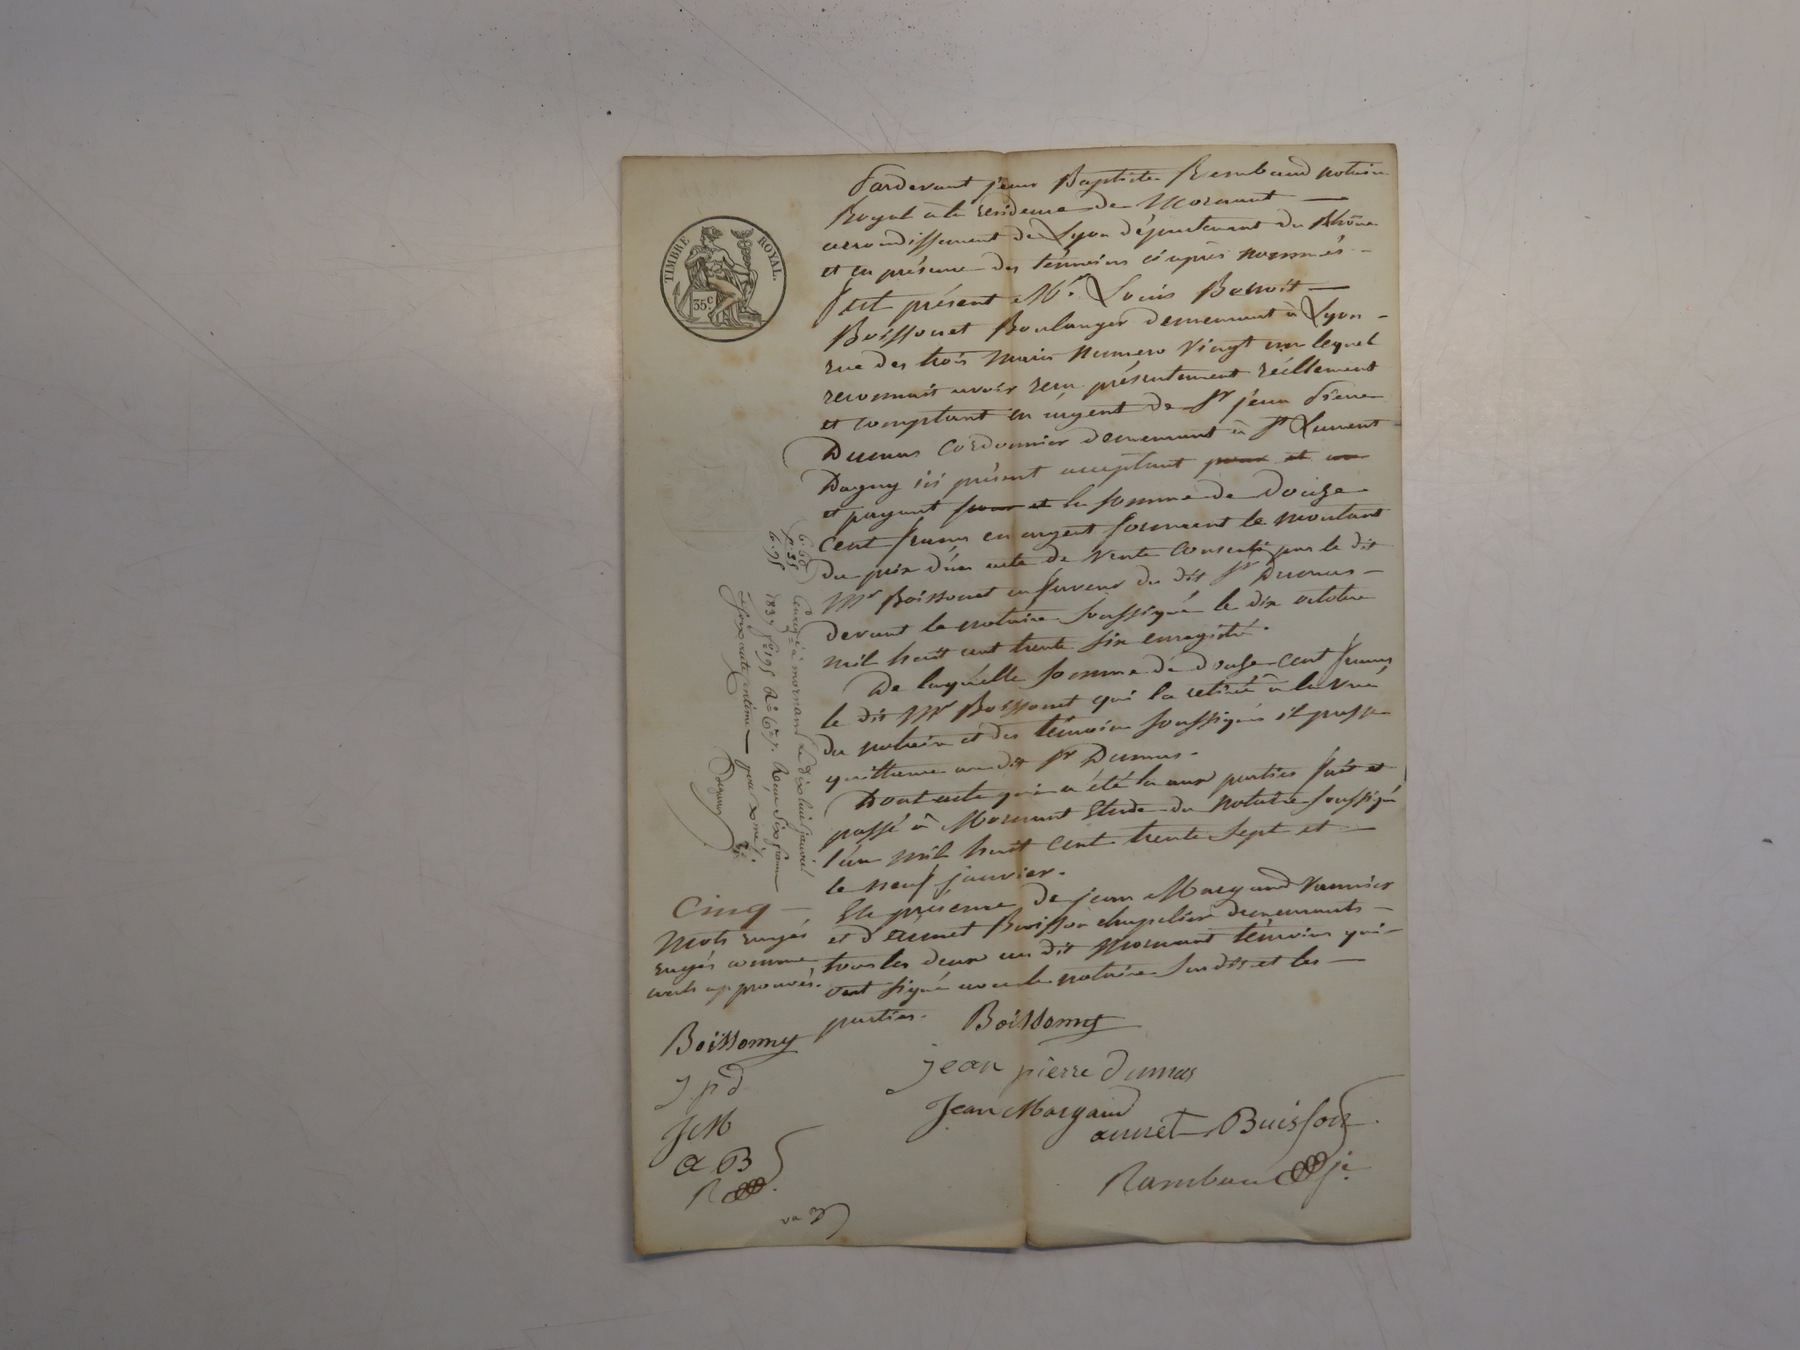 TIMBRE ROYAL.
35 c.
Pardevant jean Baptiste Rembaud notaire
Royal à la residence de Mornant
arrondissement de Lyon département du Rhône
et en présence des témoins ci après nommés
fut présent Mr. Louis Benoit
Boissonet Boulanger demeurant à Lyon
rue des trois Maries numero vingt un lequel
reconnait avoir reçu présentement réellement
et comptant en argent de Sr jean Pierre
Dumas Cordonnier demeurant à St Laurent
Dagny ici présent acceptant pour et
et payant pour et la somme de douze
cent francs en argent formant le montant
du prix d'un acte de vente consentie par le dit
Mr Boissonet en faveur du dit Sr Dumas
devant le notaire soussigné le dix octobre
mil huit cent trente six enregistré.
De laquelle somme de douze cent francs
le dit Mr Boissonet qui la retirée à la vue
du notaire et des témoins soussignés il passe
quittance au dit Sr Dumas.
Dont acte qui a été lu aux parties fait et
passé à Mornant Etude du notaire soussigné
l'an mil huit cent trente sept et
le neuf janvier.
En présence de jean Margaud vannier
et d'Aimet Buisson chapelier demeurants
tous les deux au dit Mornant témoins qui
ont signé avec le notaire susdit et les
parties.
Cinq
mots rayés
rayés comme
nuls approuvés.
6. 60
.. 35
6. 95
à mornant le dix huit janvier
1837 fo 195 Ro Co 7. Reçu six francs
soixante centimes
Boissonny
J p d
J M
a B
R
Boissonny
jean pierre dumas
Jean Margaud
aimet Buisson
Rambau